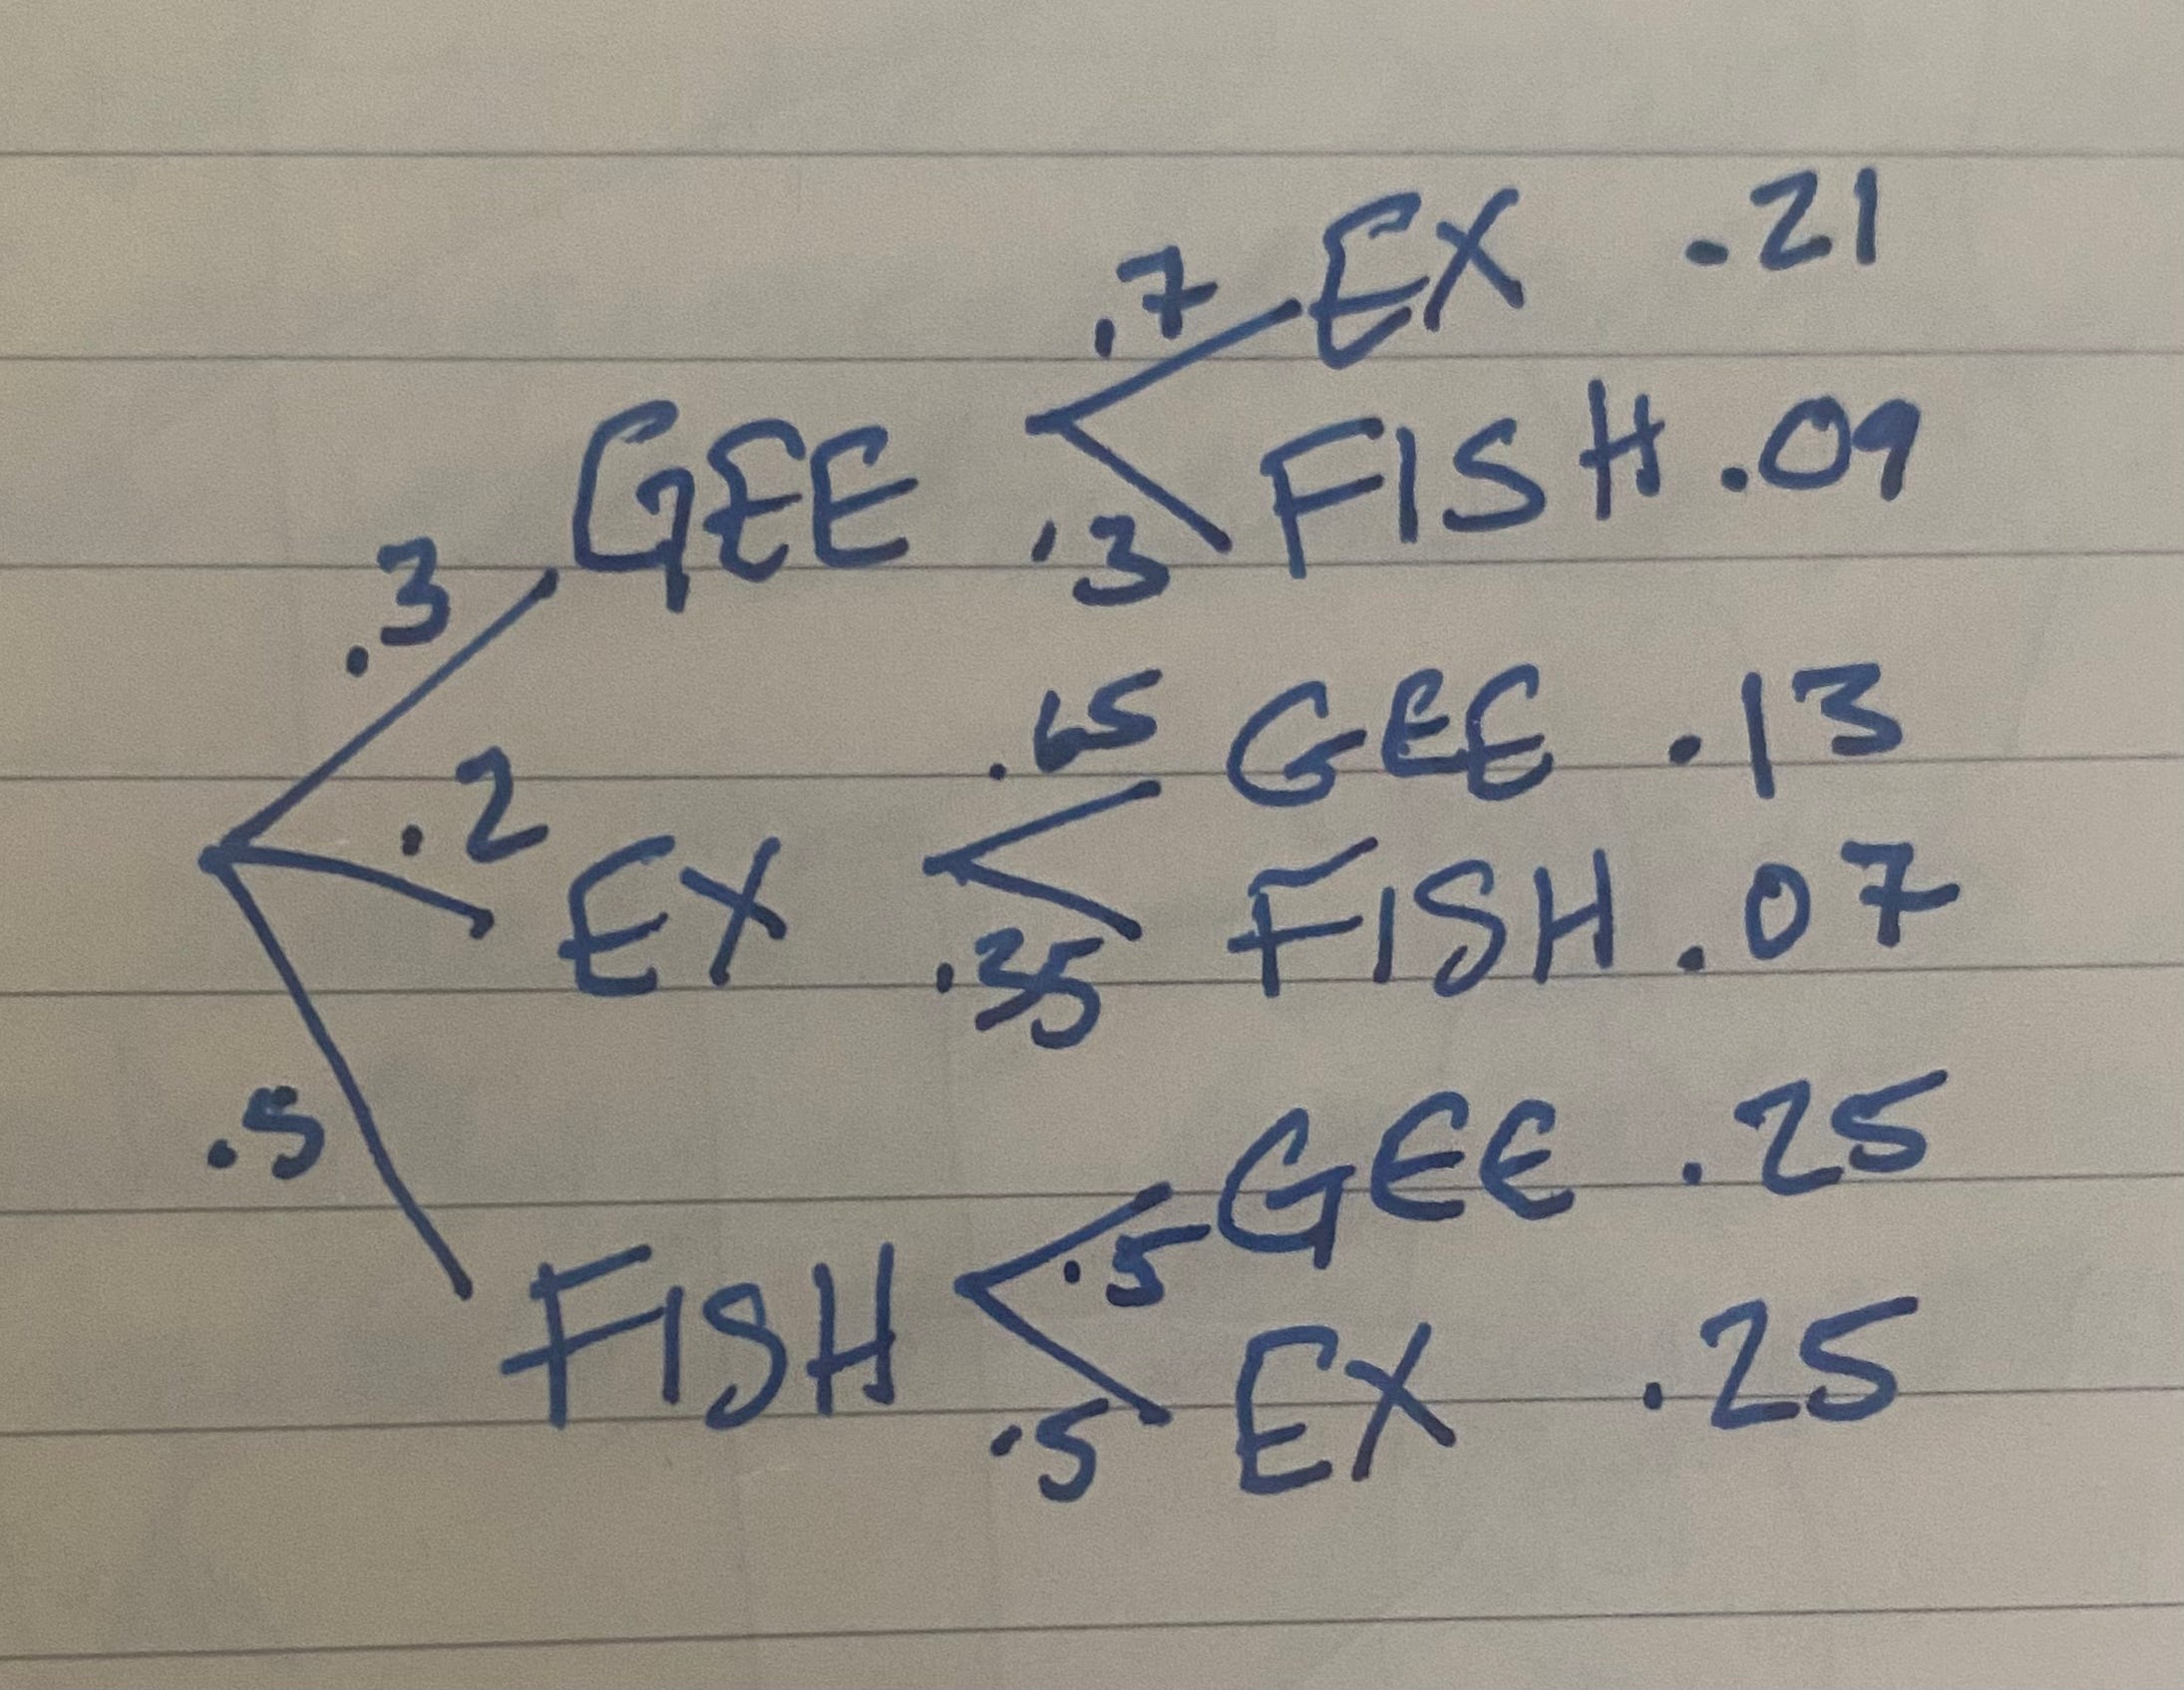 .7 EX .21
GEE
.3 FISH .09
.3
.65 GEE .13
.2 EX
.35 FISH .07
.5 GEE .25
.5
FISH
.5 EX .25